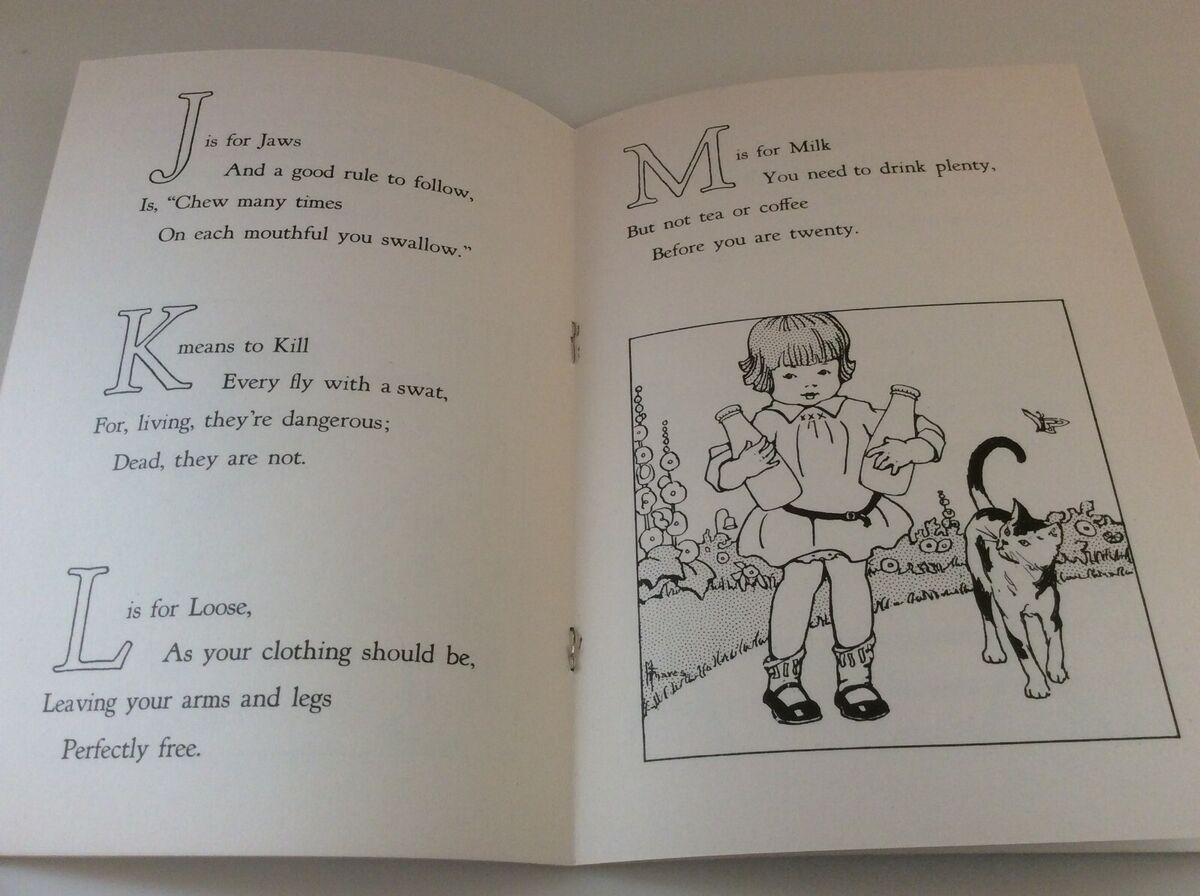 J is for Jaws
And a good rule to follow,
Is, “Chew many times
On each mouthful you swallow.”
K means to Kill
Every fly with a swat,
For, living, they're dangerous;
Dead, they are not.
L is for Loose,
As your clothing should be,
Leaving your arms and legs
Perfectly free.
M is for Milk
You need to drink plenty,
But not tea or coffee
Before you are twenty.